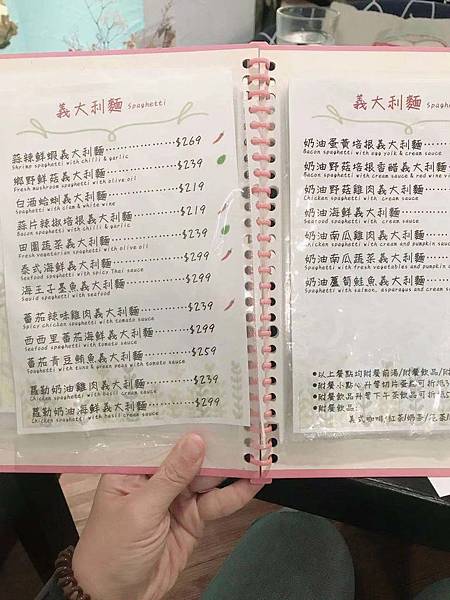 義大利麵 Spaghetti
蒜辣鮮蝦義大利麵……………$269
Shrimp spaghetti with chilli & garlic
鄉野鮮菇義大利麵……………$239
Fresh mushroom spaghetti with olive oil
白酒蛤蜊義大利麵……………$219
Spaghetti with clam & white wine
蒜片辣椒培根義大利麵………$219
Bacon spaghetti with chilli & garlic
田園蔬菜義大利麵……………$239
Fresh vegetarian spaghetti with olive oil
泰式海鮮義大利麵……………$299
Seafood spaghetti with spicy Thai sauce
海王子墨魚義大利麵…………$299
Squid spaghetti with seafood
蕃茄辣味雞肉義大利麵………$239
Spicy chicken spaghetti with tomato sauce
西西里蕃茄海鮮義大利麵……$299
Seafood spaghetti with tomato sauce
蕃茄青豆鮪魚義大利麵………$259
Spaghetti with tuna & green peas with tomato sauce
羅勒奶油雞肉義大利麵………$239
Chicken spaghetti with basil cream sauce
羅勒奶油海鮮義大利麵………$299
Chicken spaghetti with basil cream sauce
義大利麵 Spaghe
奶油蛋黃培根義大利麵
Bacon spaghetti with egg yolk & cream sauce
奶油野菇培根香醋義大利麵
Bacon spaghetti with cream sauce & red wine vi
奶油野菇雞肉義大利麵
Chicken spaghetti with cream sauce
奶油海鮮義大利麵
Seafood spaghetti with cream sauce
奶油南瓜雞肉義大利麵
Chicken spaghetti with cream and pumpkin sauce
奶油南瓜蔬菜義大利麵
Spaghetti with fresh vegetables and pumpkin
奶油蘆筍鮭魚義大利麵
Spaghetti with salmon, asparagus and cream s
●以上餐點均附餐前湯/附餐飲品/附
●附餐小點心升管切片蛋糕可折抵3
●附餐飲品升管下午茶飲品可折抵5
●附餐飲品:
美式咖啡/紅茶/奶茶/花茶/